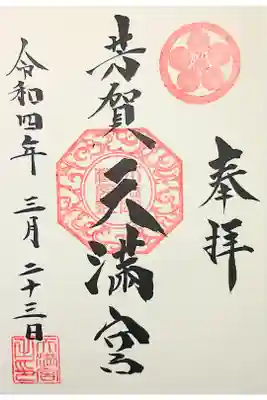 奉拝
芳賀天満宮
令和四年 三月 二十三日